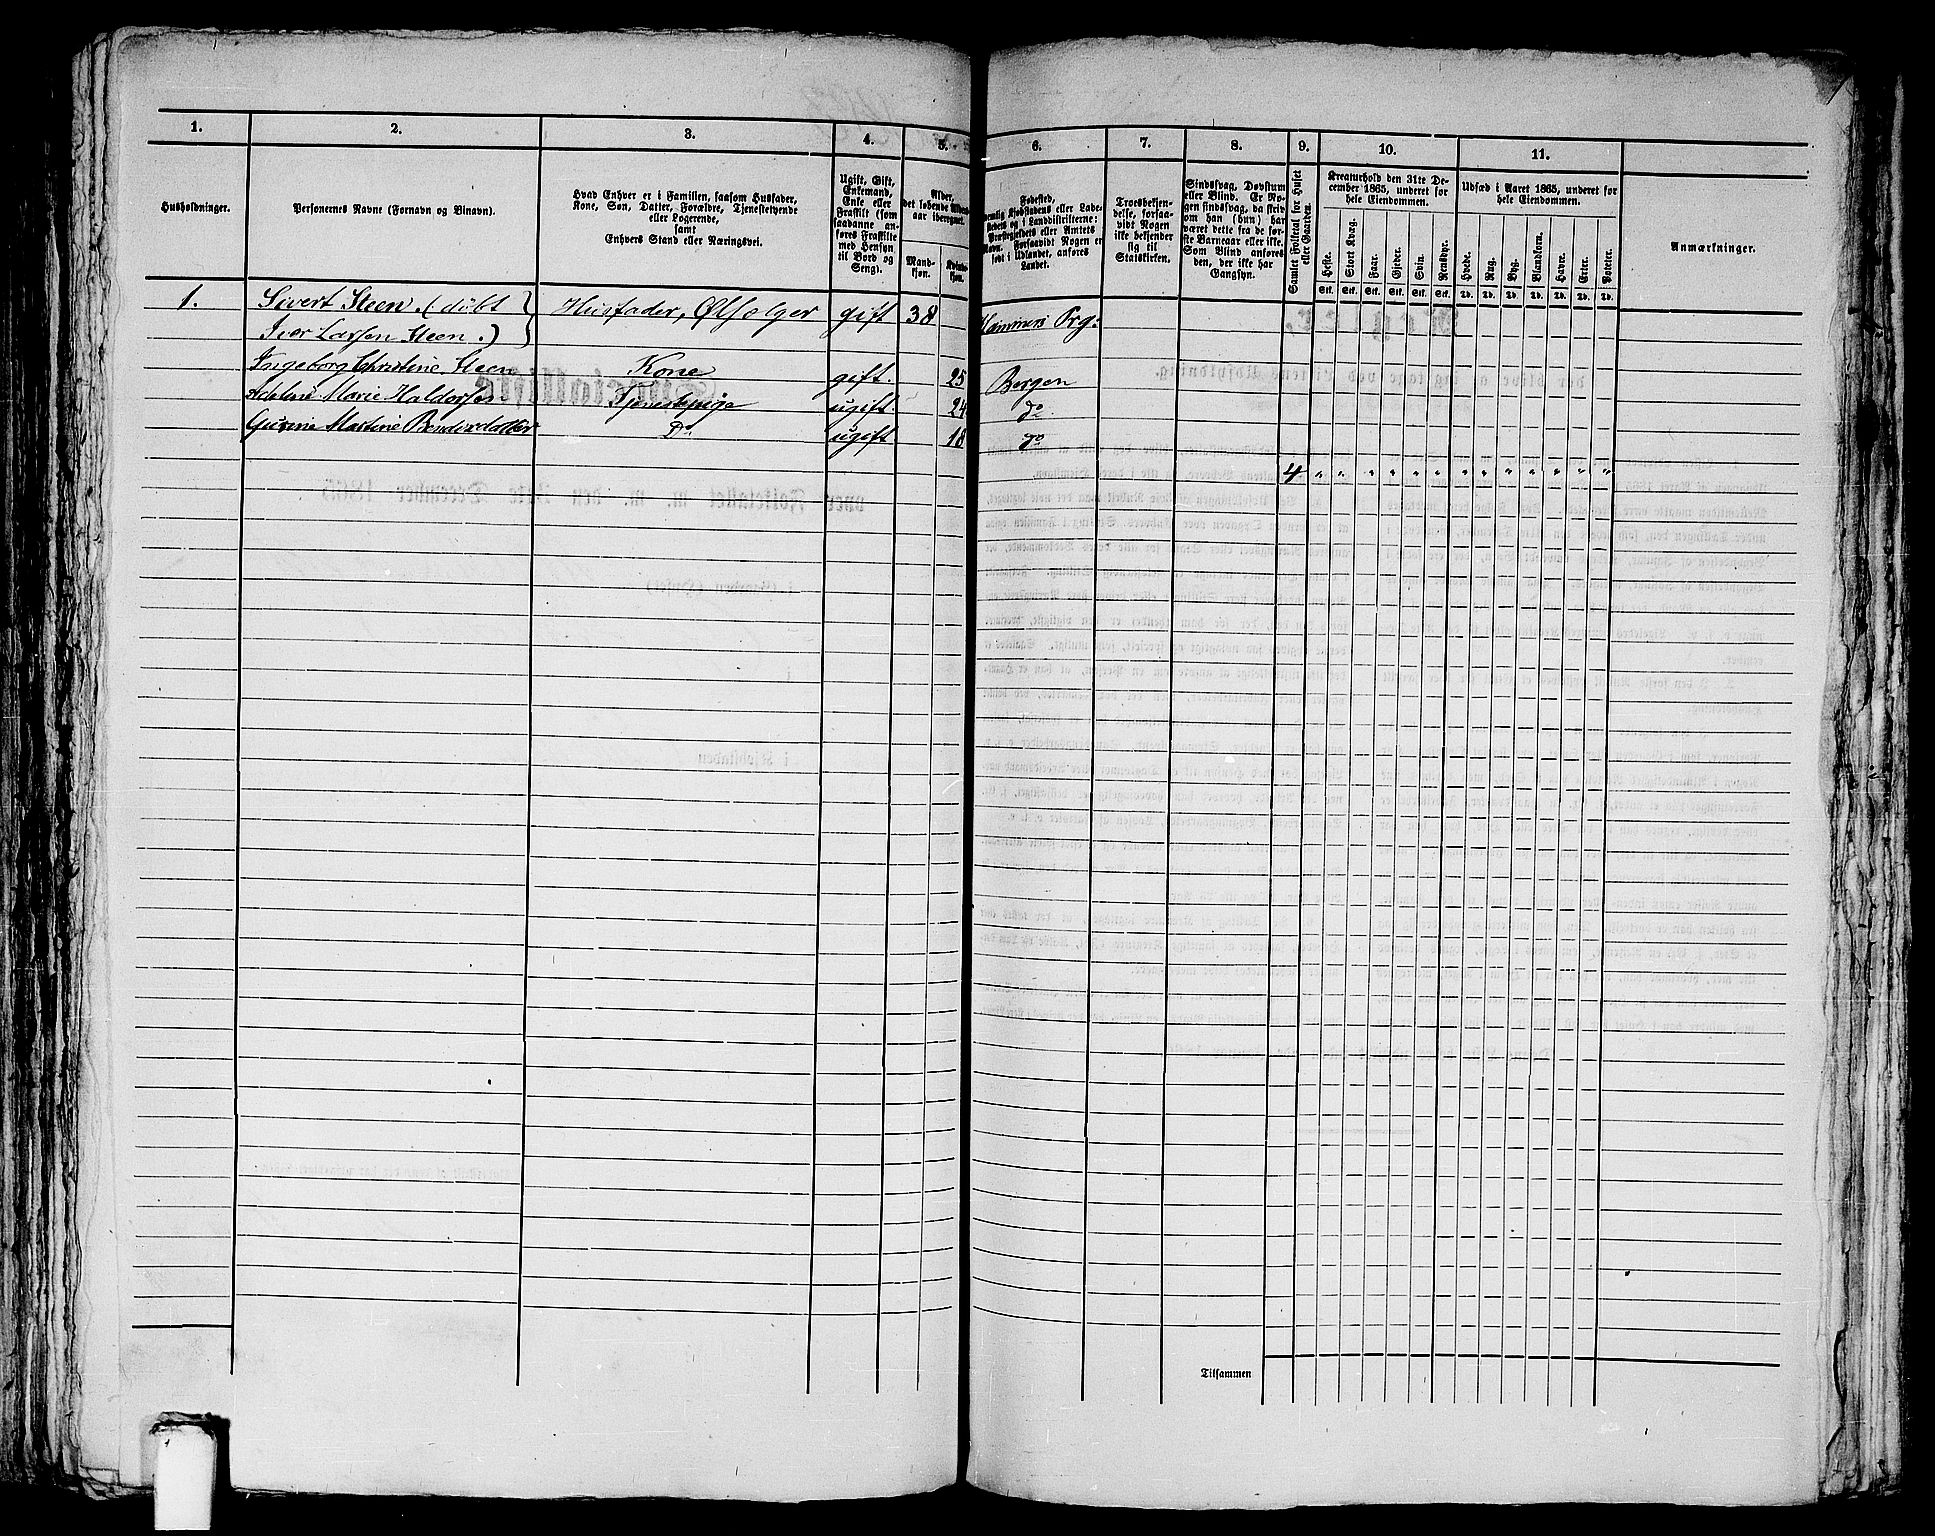 1. 2. 3. 4. 5. 6. 7. 8. 9. 10. 11.
Husholdninger.
Personernes Navne (Fornavn og Binavn).
Hvad Enhver er i Familien, saasom Husfader,
Kone, Søn, Datter, Forældre, Tjenestetyende
eller Logerende,
samt
Enhvers Stand eller Næringsvei.
Ugift, Gift,
Enkemand,
Enke eller
Fraskilt (som
saadanne an-
føres Fraskilte
med Hensyn
til Bord og
Seng).
Alder,
det løbende
aar iberegnet.
Mand-
kjøn.
Kvinde-
kjøn.
Fødested,
Kjøbstadens eller Lade-
stedets og i Landdistrikterne:
Præstegjeldets eller Amtets
Navn. Forsaavidt Nogen er
født i Udlandet, anføres
Landet.
Troesbekjen-
delse, forsaa-
vidt Nogen
ikke bekjender
sig til
Statskirken.
Sindssvag, Døvstum
eller Blind. Er No-
gen sindssvag, da skriv
om han (hun) har
været dette fra de før-
ste Barneaar eller ikke.
Som Blind anføres
den, der ikke har
Gangsyn.
Samlet Folketal for Huset
eller Gaarden.
Kreaturhold den 31te De-
cember 1865, underet for
hele Eiendommen.
Heste. Stort Kvæg. Faar. Gjeder. Svin. Rensdyr.
Stk. Stk. Stk. Stk. Stk. Stk.
Udsæd i Aaret 1865, underet for
hele Eiendommen.
Hvede. Rug. Byg. Blandkorn. Havre. Erter. Poteter.
Td. Td. Td. Td. Td. Td. Td.
Anmærkninger.
1. Sivert Steen (døbt Husfader, Ølsælger gift 38 Hammers Prg:
Iver Larsen Steen.)
Ingeborg Christine Steen Kone gift. 25 Bergen
Adeline Marie Haldorsen Tjenestepige ugift. 24 do
Martine Bendixdatter Do ugift 18 do
4 " " " " " " " " " " " " "
Tilsammen